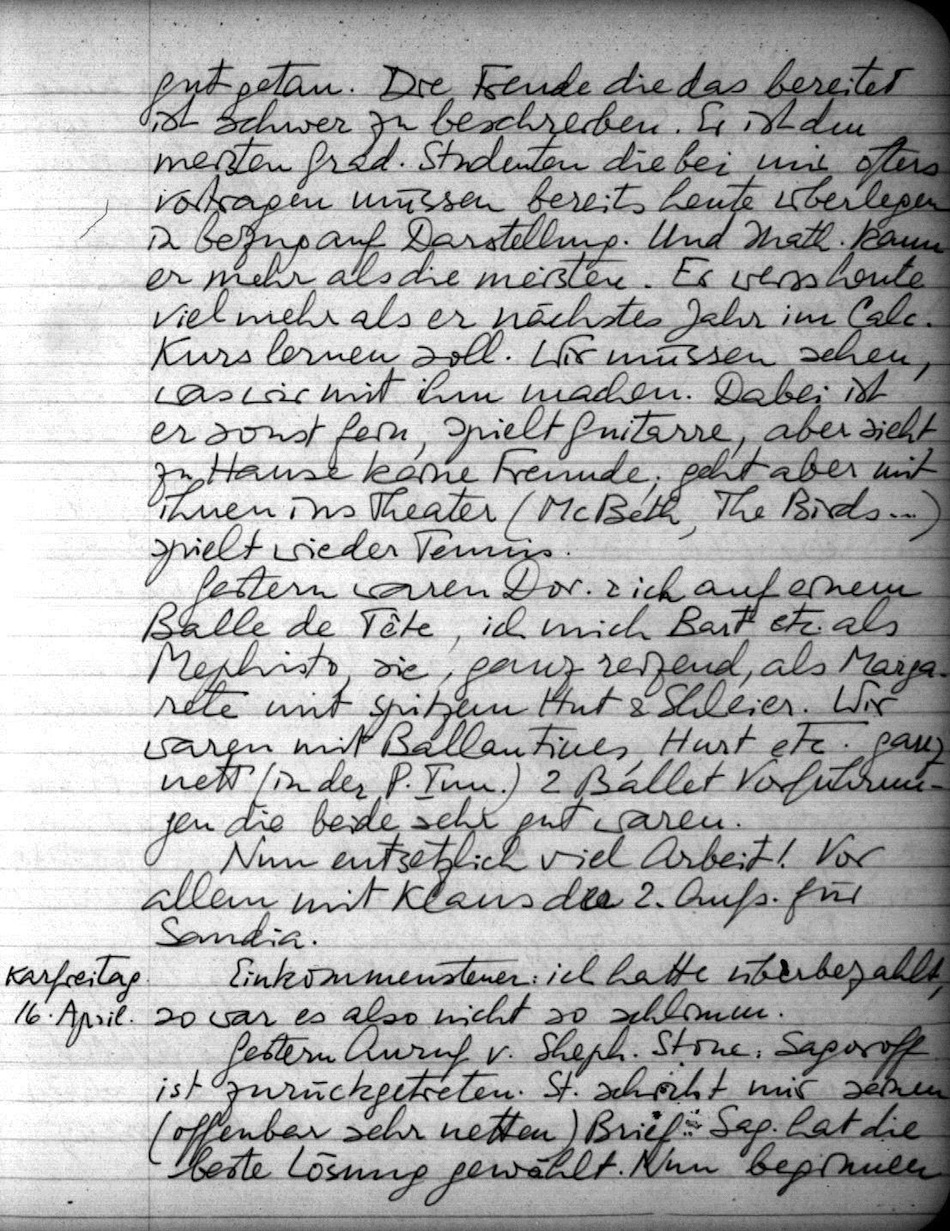 gut getan. Die Freude die das bereitet
ist schwer zu beschreiben. Er ist den
meisten Grad. Studenten die bei mir öfters
vortragen müssen bereits heute überlegen
in bezug auf Darstellung. Und Math. kann
er mehr als die meisten. Er weiss heute
viel mehr als er nächstes Jahr im Calc.
Kurs lernen soll. Wir müssen sehen,
was wir mit ihm machen. Dabei ist
er sonst fern, spielt Guitarre, aber sieht
zu Hause keine Freunde, geht aber mit
ihnen ins Theater (McBeth, The Birds...)
spielt wieder Tennis.
Gestern waren Dor. & ich auf einem
Balle de Tête, ich mich Bart etc. als
Mephisto, sie, ganz reizend, als Marga-
rete mit spitzem Hut & Shleier. Wir
waren mit Ballantines, Hurt etc. ganz
nett (in der P. Inn.) 2 Ballet Vorführun-
gen die beide sehr gut waren.
Nun entsetzlich viel Arbeit! Vor
allem mit Klaus der 2. Aufs. für
Sandia.
Karfreitag Einkommensteuer: ich hatte überbezahlt,
16. April. so war es also nicht so schlimm.
Gestern Anruf v. Sheph. Stone: Sagoroff
ist zurückgetreten. St. schickt mir seinen
(offenbar sehr netten) Brief. Sag. hat die
beste Lösung gewählt. Nun beginnen